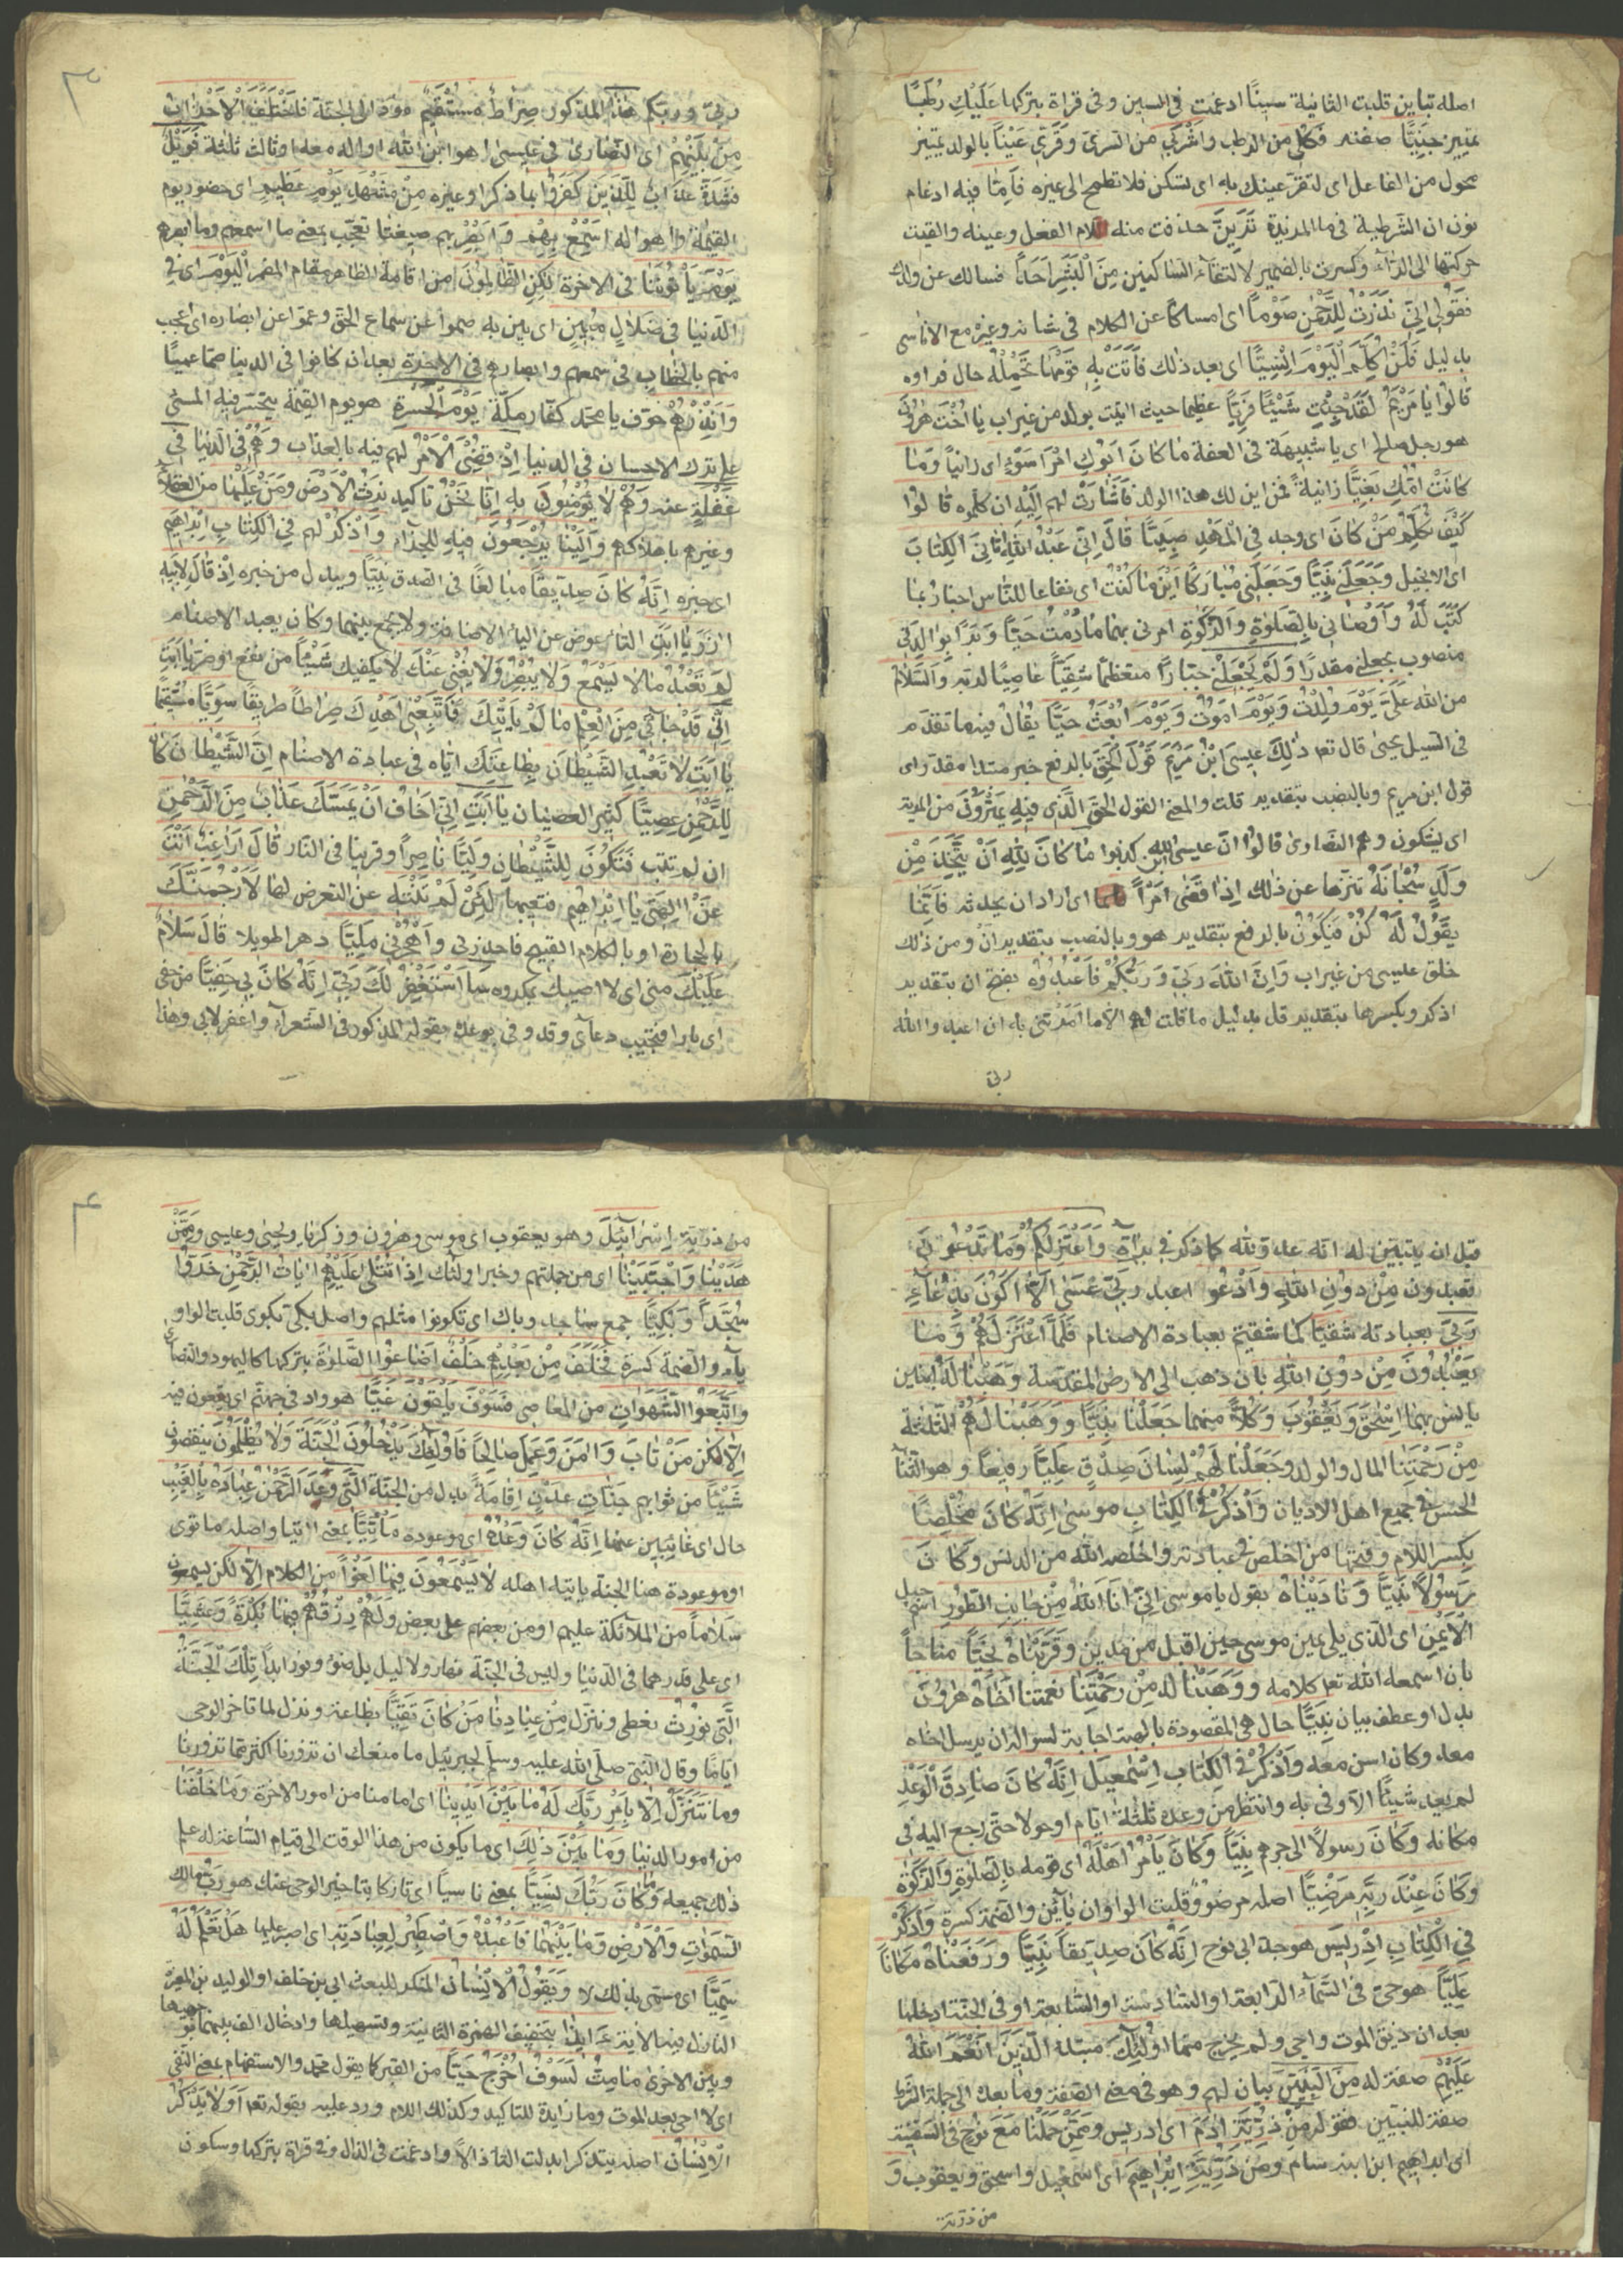 اصله تتباين قلبت الثانية سينًا ادغمت في السين وفى قراة بتركها عَلَيْكِ رُطَبًا
تمييز جَنِيًّا صفته فَكُلِى من الرطب وَاشْرَبِى من السرى وَقَرِّى عَيْنًا بالولد تمييز
محول من الفاعل اى لتقر عينك به اى تسكن فلا تطمح الى غيره فَاِمَّا فيه ادغام
نون ان الشرطية فى ما المزيدة تَرَيِنَّ حذفت منه لام الفعل وعينه والقيت
حركتها الى الراء وكسرت ياء الضمير لالتقاء الساكنين مِنَ الْبَشَرِ اَحَدًا فسالك عن ولدك
فَقُولِى اِنِّى نَذَرْتُ لِلرَّحْمٰنِ صَوْمًا اى امساكا عن الكلام فى شانه وغيره مع الاناسى
بدليل فَلَنْ اُكَلِّمَ الْيَوْمَ اِنْسِيًّا اى بعد ذلك فَاَتَتْ بِهِ قَوْمَهَا تَحْمِلُهُ حال فراوه
قَالُوا يَا مَرْيَمُ لَقَدْ جِئْتِ شَيْئًا فَرِيًّا عظيما حيث اتيت بولد من غير اب يَا اُخْتَ هٰرُونَ
هو رجل صالح اى يا شبيهة فى العفة مَا كَانَ اَبُوكِ امْرَاَ سَوْءٍ اى زانيا وَمَا
كَانَتْ اُمُّكِ بَغِيًّا زانية فمن اين لك هذا الولد فَاَشَارَتْ لهم اِلَيْهِ ان كلموه قَالُوا
كَيْفَ نُكَلِّمُ مَنْ كَانَ اى وجد فِى الْمَهْدِ صَبِيًّا قَالَ اِنِّى عَبْدُ اللهِ اٰتَانِىَ الْكِتَابَ
اى الانجيل وَجَعَلَنِى نَبِيًّا وَجَعَلَنِى مُبَارَكًا اَيْنَ مَا كُنْتُ اى نفاعا للناس اخبار بما
كتب له وَاَوْصَانِى بِالصَّلٰوةِ وَالزَّكٰوةِ امرنى بهما مَا دُمْتُ حَيًّا وَبَرًّا بِوَالِدَتِى
منصوب بجعلنى مقدرا وَلَمْ يَجْعَلْنِى جَبَّارًا متعظما شَقِيًّا عاصيا لربه وَالسَّلَامُ
من الله عَلَىَّ يَوْمَ وُلِدْتُ وَيَوْمَ اَمُوتُ وَيَوْمَ اُبْعَثُ حَيًّا يقال فيه ما تقدم
فى السيد يحيى قال تعا ذٰلِكَ عِيسَى ابْنُ مَرْيَمَ قَوْلُ الْحَقِّ بالرفع خبر مبتدا مقدر اى
قول ابن مريم وبالنصب بتقدير قلت والمعنى القول الحق الَّذِى فِيهِ يَمْتَرُونَ من المرية
اى يشكون وهم النصارى قالوا ان عيسى ابن الله كذبوا مَا كَانَ لِلّٰهِ اَنْ يَتَّخِذَ مِنْ
وَلَدٍ سُبْحَانَهُ تنزيها عن ذلك اِذَا قَضٰى اَمْرًا اى اراد ان يحدثه فَاِنَّمَا
يَقُولُ لَهُ كُنْ فَيَكُونُ بالرفع بتقدير هو وبالنصب بتقدير ان ومن ذلك
خلق عيسى من غير اب وَاِنَّ اللهَ رَبِّى وَرَبُّكُمْ فَاعْبُدُوهُ بفتح ان بتقدير
اذكر وبكسرها بتقدير قل بدليل ما قلت لهم الا ما امرتنى به ان اعبدوا الله
ربى
٣
ربى وربكم هٰذَا المذكور صِرَاطٌ مُسْتَقِيمٌ مؤد الى الجنة فَاخْتَلَفَ الْاَحْزَابُ
مِنْ بَيْنِهِمْ اى النصارى فى عيسى اهو ابن الله او اله معه او ثالث ثلثة فَوَيْلٌ
فشدة عذاب لِلَّذِينَ كَفَرُوا بما ذكر وغيره مِنْ مَشْهَدِ يَوْمٍ عَظِيمٍ اى حضور يوم
القيمة واهواله اَسْمِعْ بِهِمْ وَاَبْصِرْ بهم صيغتا تعجب بمعنى ما اسمعهم وما ابصرهم
يَوْمَ يَاْتُونَنَا فى الاخرة لٰكِنِ الظَّالِمُونَ من اقامة الظاهر مقام المضمر اَلْيَوْمَ اى فى
الدنيا فِى ضَلَالٍ مُبِينٍ اى بين به صموا عن سماع الحق وعموا عن ابصاره اى اعجب
منهم يا مخاطب فى سمعهم وابصارهم فى الاخرة بعد ان كانوا فى الدنيا صما عميا
وَاَنْذِرْهُمْ خوف يا محمد كفار مكة يَوْمَ الْحَسْرَةِ هو يوم القيمة يتحسر فيه المسئ
على ترك الاحسان فى الدنيا اِذْ قُضِىَ الْاَمْرُ لهم فيه بالعذاب وَهُمْ فى الدنيا فِى
غَفْلَةٍ عنه وَهُمْ لَا يُؤْمِنُونَ به اِنَّا نَحْنُ تاكيد نَرِثُ الْاَرْضَ وَمَنْ عَلَيْهَا من العقلاء
وغيرهم باهلاكهم وَاِلَيْنَا يُرْجَعُونَ فيه للجزاء وَاذْكُرْ لهم فِى الْكِتَابِ اِبْرَاهِيمَ
اى خبره اِنَّهُ كَانَ صِدِّيقًا مبالغا فى الصدق نَبِيًّا ويبدل من خبره اِذْ قَالَ لِاَبِيهِ
ازر يَا اَبَتِ التاء عوض عن الياء الاضافة ولا يجمع بينهما وكان يعبد الاصنام
لِمَ تَعْبُدُ مَا لَا يَسْمَعُ وَلَا يُبْصِرُ وَلَا يُغْنِى عَنْكَ لا يكفيك شَيْئًا من نفع او ضر يَا اَبَتِ
اِنِّى قَدْ جَاءَنِى مِنَ الْعِلْمِ مَا لَمْ يَاْتِكَ فَاتَّبِعْنِى اَهْدِكَ صِرَاطًا طريقا سَوِيًّا مستقيما
يَا اَبَتِ لَا تَعْبُدِ الشَّيْطَانَ بطاعتك اياه فى عبادة الاصنام اِنَّ الشَّيْطَانَ كَانَ
لِلرَّحْمٰنِ عَصِيًّا كثير العصيان يَا اَبَتِ اِنِّى اَخَافُ اَنْ يَمَسَّكَ عَذَابٌ مِنَ الرَّحْمٰنِ
ان لم تتب فَتَكُونَ لِلشَّيْطَانِ وَلِيًّا ناصرا وقرينا فى النار قَالَ اَرَاغِبٌ اَنْتَ
عَنْ اٰلِهَتِى يَا اِبْرَاهِيمُ فتعيبها لَئِنْ لَمْ تَنْتَهِ عن التعرض لها لَاَرْجُمَنَّكَ
بالحجارة او بالكلام القبيح فاحذرنى وَاهْجُرْنِى مَلِيًّا دهرا طويلا قَالَ سَلَامٌ
عَلَيْكَ منى اى لا اصيبك بمكروه سَاَسْتَغْفِرُ لَكَ رَبِّى اِنَّهُ كَانَ بِى حَفِيًّا من حفى
اى بارا فيجيب دعاى وقد وفى بوعده بقوله المذكور فى الشعراء واغفر لابى وهذا
قبل ان يتبين له انه عدو لله كما ذكر فى براة وَاَعْتَزِلُكُمْ وَمَا تَدْعُونَ
تعبدون مِنْ دُونِ اللهِ وَاَدْعُوا اعبد رَبِّى عَسٰى اَلَّا اَكُونَ بِدُعَاءِ
رَبِّى بعبادته شَقِيًّا كما شقيتم بعبادة الاصنام فَلَمَّا اعْتَزَلَهُمْ وَمَا
يَعْبُدُونَ مِنْ دُونِ اللهِ بان ذهب الى الارض المقدسة وَهَبْنَا لَهُ ابنين
يانس بهما اِسْحٰقَ وَيَعْقُوبَ وَكُلًّا منهما جَعَلْنَا نَبِيًّا وَوَهَبْنَا لَهُمْ الثلثة
مِنْ رَحْمَتِنَا المال والولد وَجَعَلْنَا لَهُمْ لِسَانَ صِدْقٍ عَلِيًّا رفيعا وهو الثناء
الحسن فى جميع اهل الاديان وَاذْكُرْ فِى الْكِتَابِ مُوسٰى اِنَّهُ كَانَ مُخْلِصًا
بكسر اللام وفتحها من اخلص فى عبادته واخلصه الله من الدنس وَكَانَ
رَسُولًا نَبِيًّا وَنَادَيْنَاهُ بقول يا موسى انى انا الله مِنْ جَانِبِ الطُّورِ اسم جبل
الْاَيْمَنِ اى الذى يلى يمين موسى حين اقبل من مدين وَقَرَّبْنَاهُ نَجِيًّا مناجيا
بان اسمعه الله تعا كلامه وَوَهَبْنَا لَهُ مِنْ رَحْمَتِنَا نعمتنا اَخَاهُ هٰرُونَ
بدل او عطف بيان نَبِيًّا حال هى المقصودة بالهبة اجابة لسواله ان يرسل اخاه
معه وكان اسن معه وَاذْكُرْ فِى الْكِتَابِ اِسْمٰعِيلَ اِنَّهُ كَانَ صَادِقَ الْوَعْدِ
لم يعد شيئا الا وفى به وانتظر من وعده ثلثة ايام او حولا حتى رجع اليه فى
مكانه وَكَانَ رَسُولًا الى جرهم نَبِيًّا وَكَانَ يَاْمُرُ اَهْلَهُ اى قومه بِالصَّلٰوةِ وَالزَّكٰوةِ
وَكَانَ عِنْدَ رَبِّهِ مَرْضِيًّا اصله مرضوو قلبت الواوان يائين والضمة كسرة وَاذْكُرْ
فِى الْكِتَابِ اِدْرِيسَ هو جد ابى نوح اِنَّهُ كَانَ صِدِّيقًا نَبِيًّا وَرَفَعْنَاهُ مَكَانًا
عَلِيًّا هو حى فى السماء الرابعة او السادسة او السابعة او فى الجنة ادخلها
بعد ان ذيق الموت واحى ولم يخرج منها اُولٰئِكَ مبتدا الَّذِينَ اَنْعَمَ اللهُ
عَلَيْهِمْ صفة له مِنَ النَّبِيِّينَ بيان لهم وهو فى معنى الصفة وما بعده الى جملة الشرط
صفة للنبيين فقوله مِنْ ذُرِّيَّةِ اٰدَمَ اى ادريس وَمِمَّنْ حَمَلْنَا مَعَ نُوحٍ فى السفينة
اى ابراهيم ابن ابنه سام وَمِنْ ذُرِّيَّةِ اِبْرَاهِيمَ اى اسمعيل واسحق ويعقوب وَ
من ذرية
٤
من ذرية اِسْرَائِيلَ وهو يعقوب اى موسى وهرون وزكريا ويحيى وعيسى وَمِمَّنْ
هَدَيْنَا وَاجْتَبَيْنَا اى من جملتهم وخبر اولئك اِذَا تُتْلٰى عَلَيْهِمْ اٰيَاتُ الرَّحْمٰنِ خَرُّوا
سُجَّدًا وَبُكِيًّا جمع ساجد وباك اى تكونوا مثلهم واصل بكى بكوى قلبت الواو
ياء والضمة كسرة فَخَلَفَ مِنْ بَعْدِهِمْ خَلْفٌ اَضَاعُوا الصَّلٰوةَ بتركها كاليهود والنصارى
وَاتَّبَعُوا الشَّهَوَاتِ من المعاصى فَسَوْفَ يَلْقَوْنَ غَيًّا هو واد فى جهنم اى يقعون فيه
اِلَّا لكن مَنْ تَابَ وَاٰمَنَ وَعَمِلَ صَالِحًا فَاُولٰئِكَ يَدْخُلُونَ الْجَنَّةَ وَلَا يُظْلَمُونَ ينقصون
شَيْئًا من ثوابهم جَنَّاتِ عَدْنٍ اقامة بدل من الجنة الَّتِى وَعَدَ الرَّحْمٰنُ عِبَادَهُ بِالْغَيْبِ
حال اى غائبين عنها اِنَّهُ كَانَ وَعْدُهُ اى موعوده مَاْتِيًّا بمعنى اتيا واصله ماتوى
او موعوده هنا الجنة ياتيه اهله لَا يَسْمَعُونَ فِيهَا لَغْوًا من الكلام اِلَّا لكن يسمعون
سَلَامًا من الملائكة عليهم او من بعضهم على بعض وَلَهُمْ رِزْقُهُمْ فِيهَا بُكْرَةً وَعَشِيًّا
اى على قدرهما فى الدنيا وليس فى الجنة نهار ولا ليل بل ضوء ونور ابدا تِلْكَ الْجَنَّةُ
الَّتِى نُورِثُ نعطى وننزل مِنْ عِبَادِنَا مَنْ كَانَ تَقِيًّا بطاعته ونزل لما تاخر الوحى
اياما وقال النبى صلى الله عليه وسلم لجبرئيل ما منعك ان تزورنا اكثر مما تزورنا
وَمَا نَتَنَزَّلُ اِلَّا بِاَمْرِ رَبِّكَ لَهُ مَا بَيْنَ اَيْدِينَا اى امامنا من امور الاخرة وَمَا خَلْفَنَا
من امور الدنيا وَمَا بَيْنَ ذٰلِكَ اى ما يكون من هذا الوقت الى قيام الساعة له علم
ذلك جميعه وَمَا كَانَ رَبُّكَ نَسِيًّا بمعنى ناسيا اى تاركا بتاخير الوحى عنك هو رَبُّ مالك
السَّمٰوَاتِ وَالْاَرْضِ وَمَا بَيْنَهُمَا فَاعْبُدْهُ وَاصْطَبِرْ لِعِبَادَتِهِ اى اصبر عليها هَلْ تَعْلَمُ لَهُ
سَمِيًّا اى مسمى بذلك لا وَيَقُولُ الْاِنْسَانُ المنكر للبعث ابى بن خلف او الوليد بن المغيرة
النازل فيه الاية ءَاِذَا بتحقيق الهمزة الثانية وتسهيلها وادخال الف بينهما بوجهيها
وبين الاخرى مَا مِتُّ لَسَوْفَ اُخْرَجُ حَيًّا من القبر كما يقول محمد والاستفهام بمعنى النفى
اى لا احى بعد الموت وما زايدة للتاكيد وكذلك اللام ورد عليه بقوله تعا اَوَلَا يَذَّكَّرُ
الْاِنْسَانُ اصله يتذكر ابدلت التاء ذالا وادغمت فى الذال وفى قراة بتركها وسكون